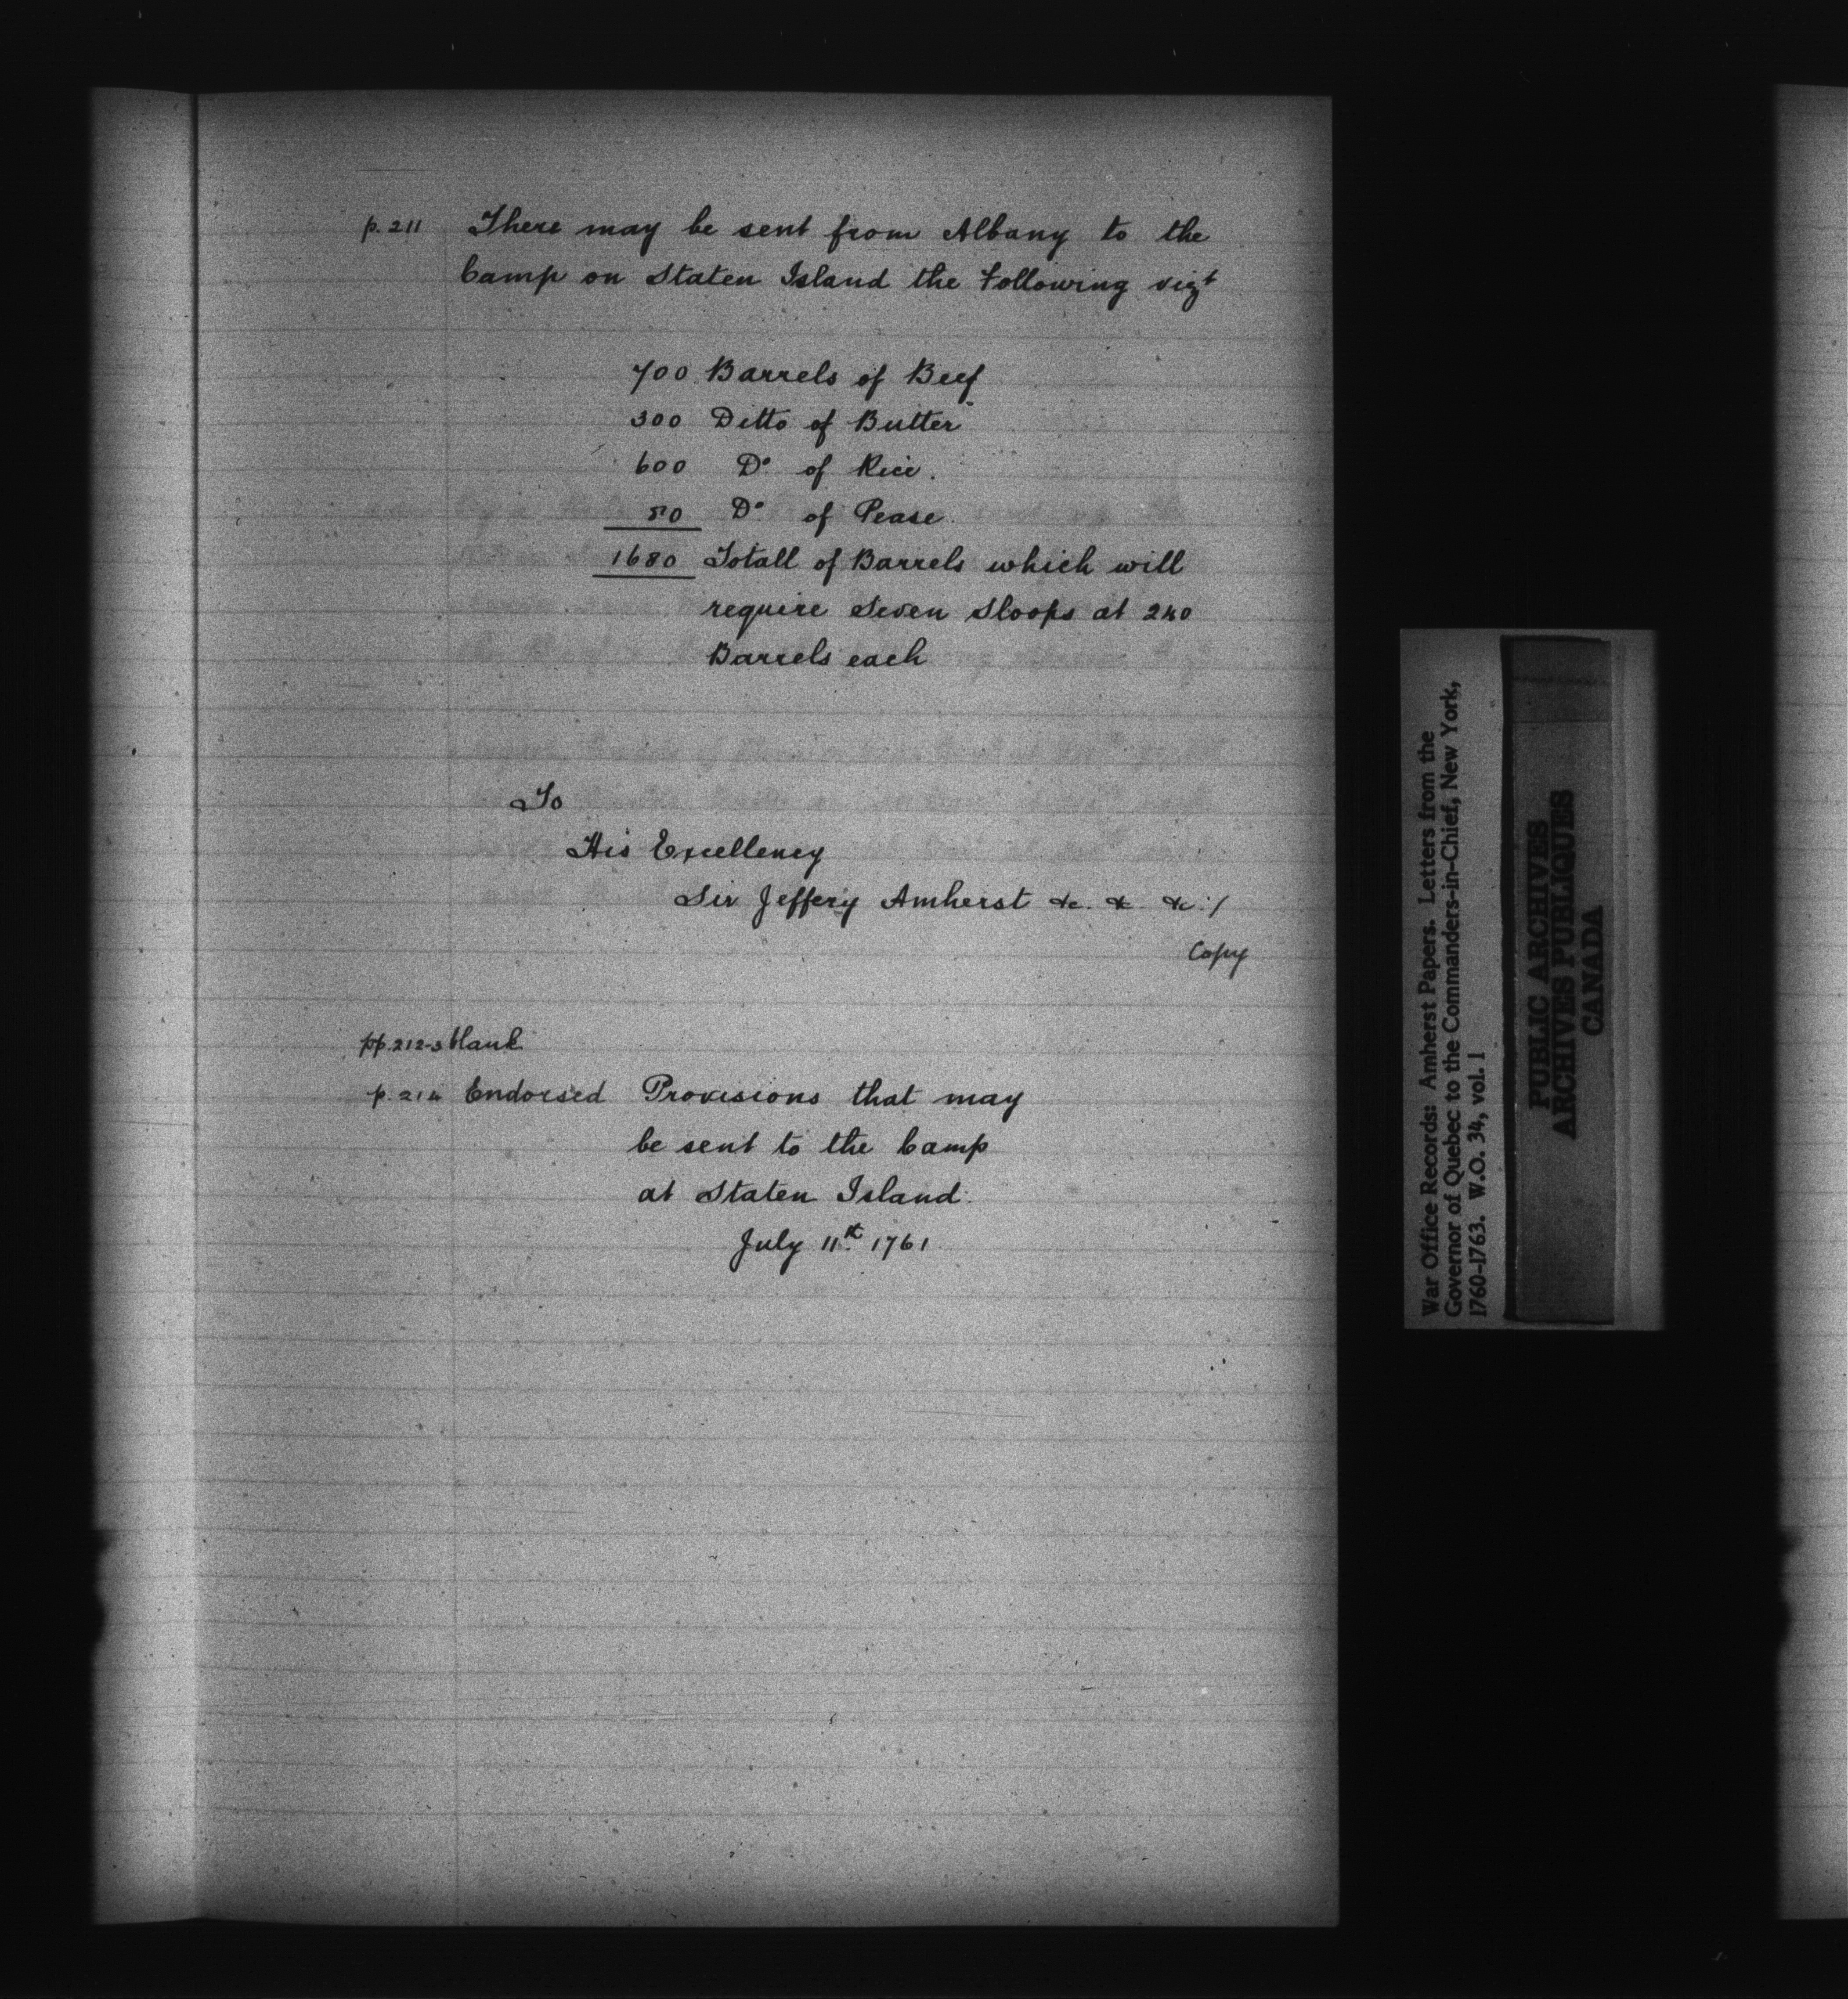 p. 211 There may be sent from Albany to the
Camp on Staten Island the following vizt
700 Barrels of Beef
300 Ditto of Butter
600 Do of Rice.
80 Do of Pease.
1680 Totall of Barrels which will
require Seven Sloops at 240
Barrels each
To
His Excellency
Sir Jeffery Amherst &c. & &c:/
Copy
pp. 212-3 blank
p. 214 Endorsed Provisions that may
be sent to the Camp
at Staten Island.
July 11th 1761.
War Office Records: Amherst Papers. Letters from the
Governor of Quebec to the Commanders-in-Chief, New York,
1760-1763. W.O. 34, vol. 1
PUBLIC ARCHIVES
ARCHIVES PUBLIQUES
CANADA